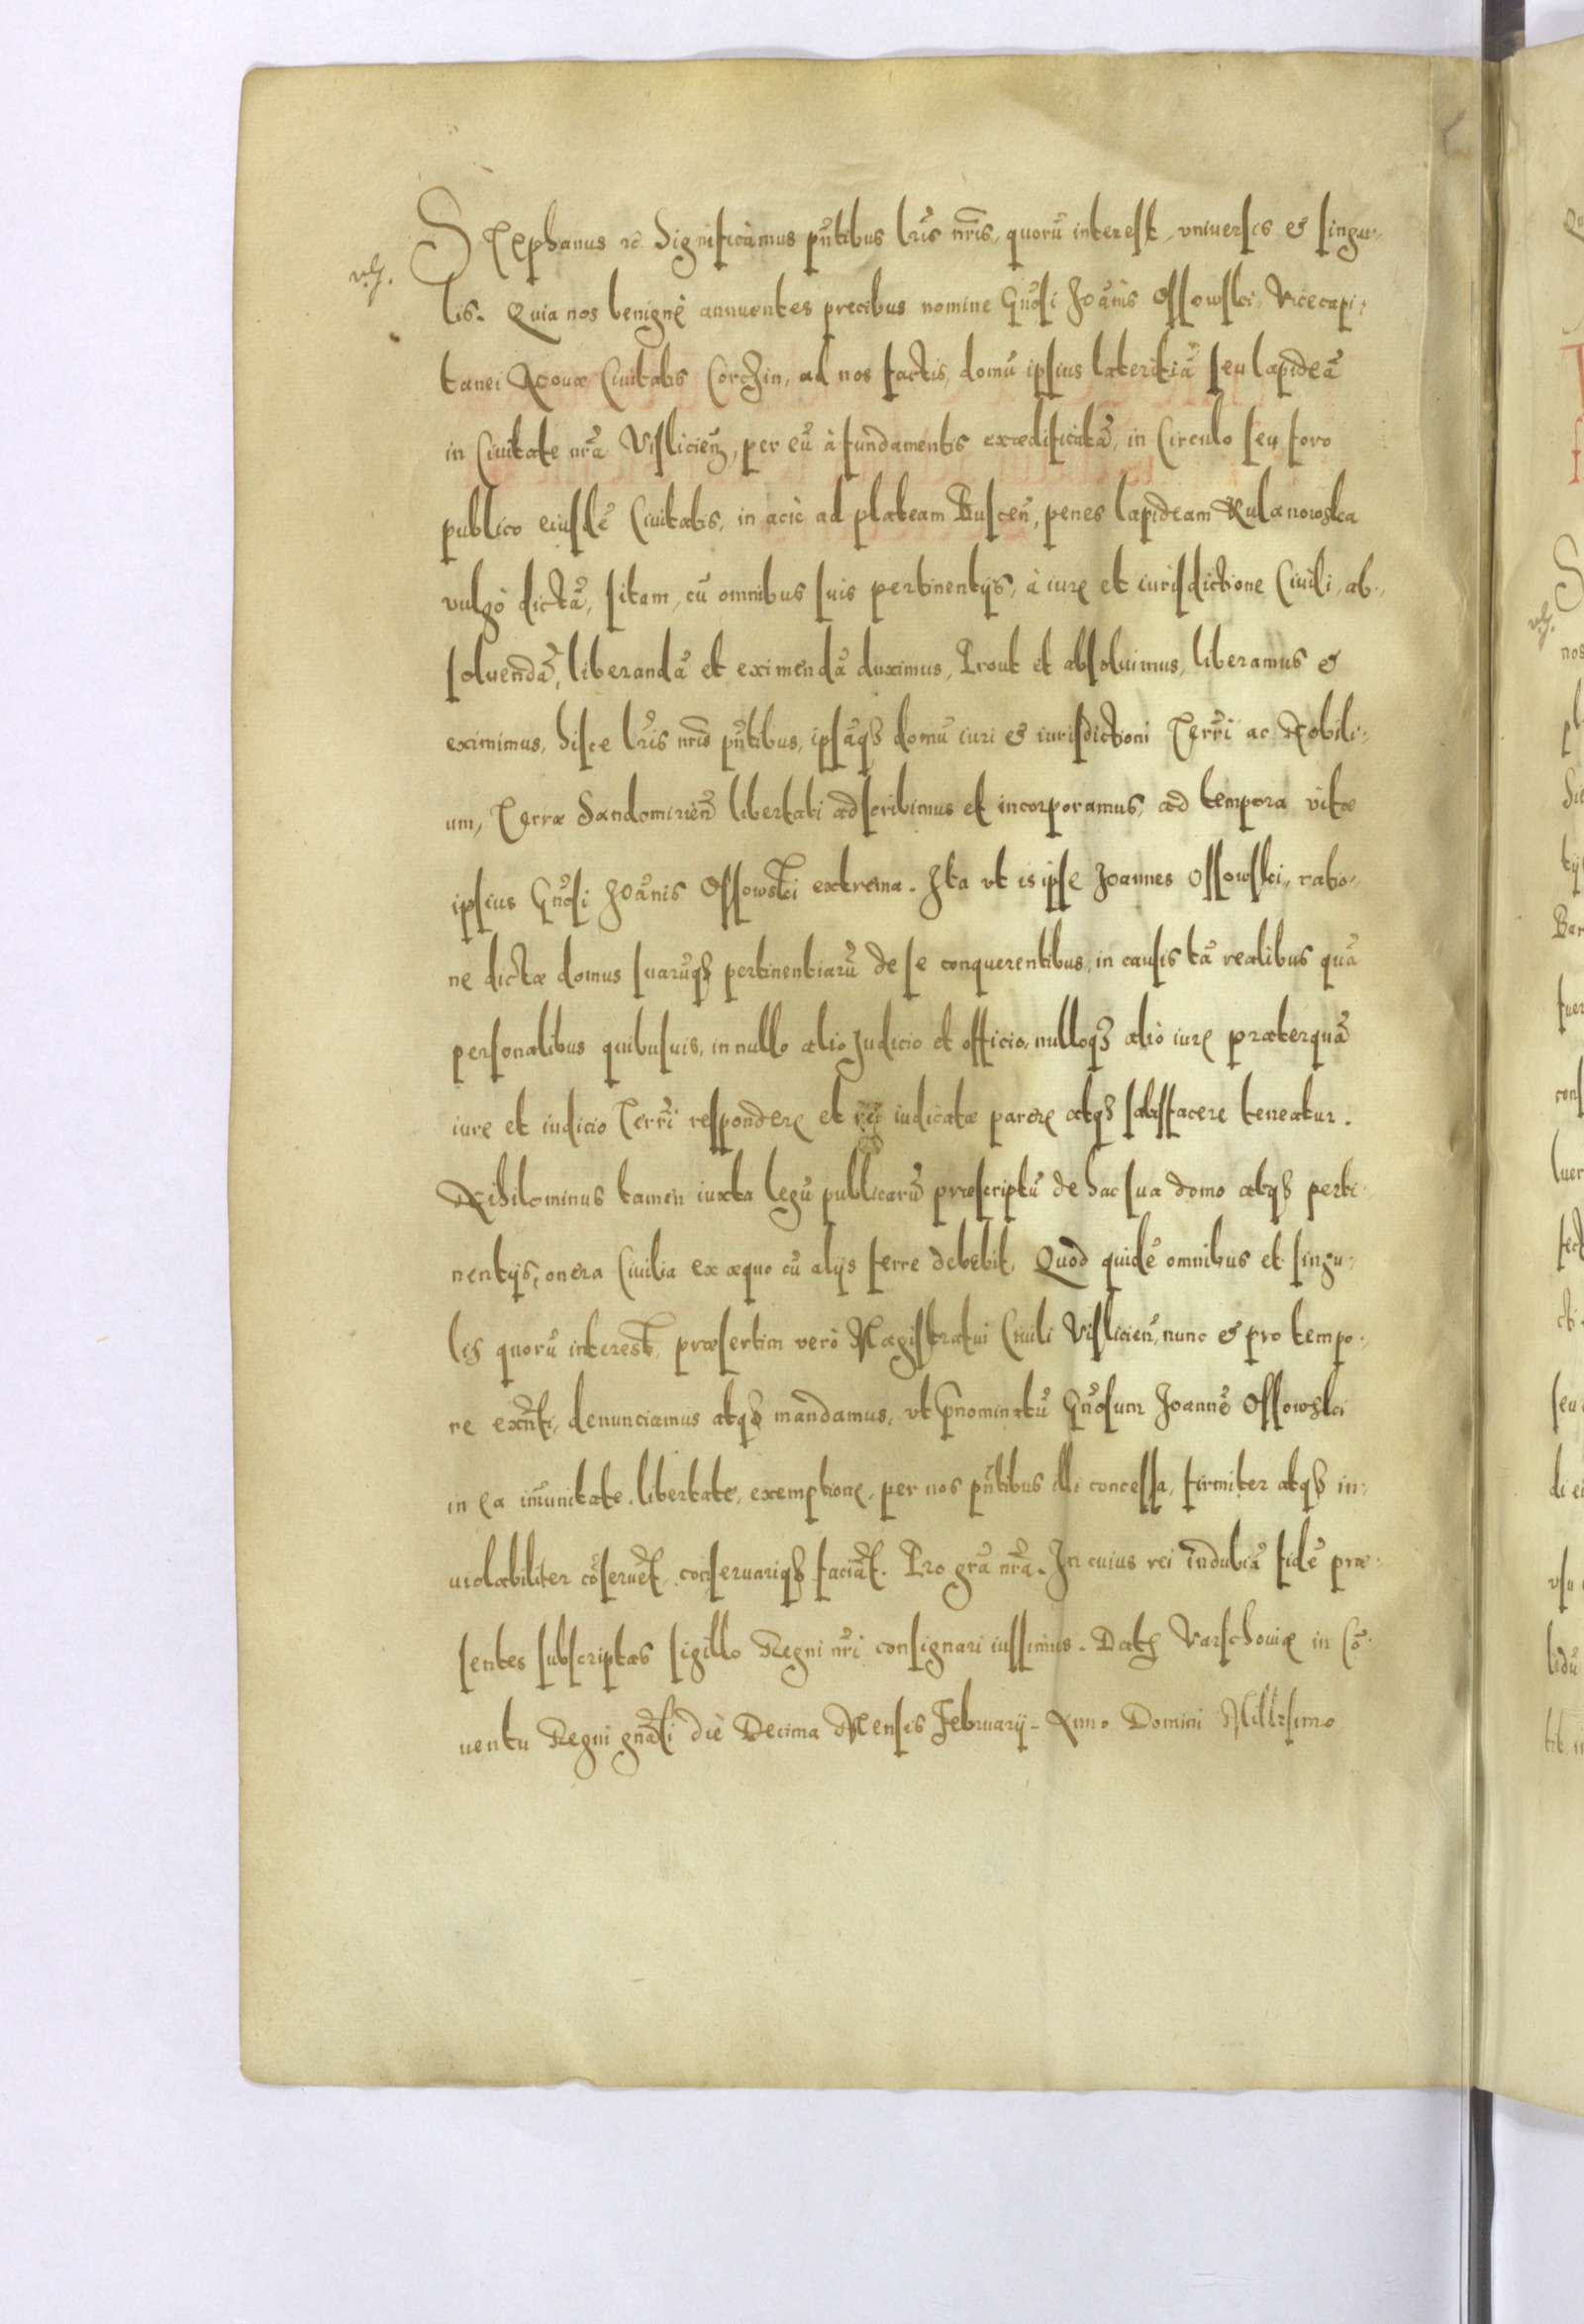 STEphanus &c. Significamus pñtibus lrís nrís, quorũ interest, vniuersis et singu-
lis. Quia nos benignè annuentes precibus nomine Gñosi Joãnis Ossowski, Vicecapi-
tanei Nouæ Ciuitatis Corczin, ad nos factis, domũ ipsius lateritiã seu lapideã
in Ciuitate nrã Vislicieñ, per eũ à fundamentis exædificatã, in Circulo seu foro
publico eiusdẽ Ciuitatis, in acie ad plateam Busceñ, penes lapideam Kulanowska
vulgò dictã, sitam, cũ omnibus suis pertinentijs, à iure et iurisdictione Ciuili, ab-
soluendã, liberandã et eximendã duximus, Prout et absoluimus, liberamus et
eximimus, hisce lrís nrís pñtibus, ipsãqz domũ iuri et iurisdictioni Terrri ac Nobili-
um, Terræ Sandomirieñ libertati adscribimus et incorporamus, ad tempora vitæ
ipsius Gñosi Joãnis Ossowski extrema. Ita vt is ipse Joannes Ossowski, ratio-
ne dictæ domus suarũqz pertinentiarũ de se conquerentibus, in causis tã realibus quã
personalibus quibusuis, in nullo alio Judicio et officio, nulloqz alio iure præterquã
iure et iudicio Terrri respondere et rei iudicatæ parere atqz satisfacere teneatur.
Nihilominus tamen iuxta legũ publicarũ præscriptũ de hac sua domo atqz perti-
nentijs, onera Ciuilia ex æquo cũ alijs ferre debebit. Quod quidẽ omnibus et singu-
lis quorũ interest, præsertim verò Magistratui Ciuili Vislicieñ, nunc et pro tempo-
re exñti, denunciamus atqz mandamus, vt pñominatũ Gñosum Joannẽ Ossowski
in ea imũnitate, libertate, exemptione, per nos pñtibus illi concessa, firmiter atqz in-
uiolabiliter cõseruet, conseruariqz faciat. Pro grã nrã. In cuius rei indubiã fidẽ præ-
sentes subscriptas sigillo Regni nrí consignari iussimus. Datz Varschouiæ in Cõ-
uentu Regni gñali die Decima Mensis Februarij. Anno Domini Millesimo